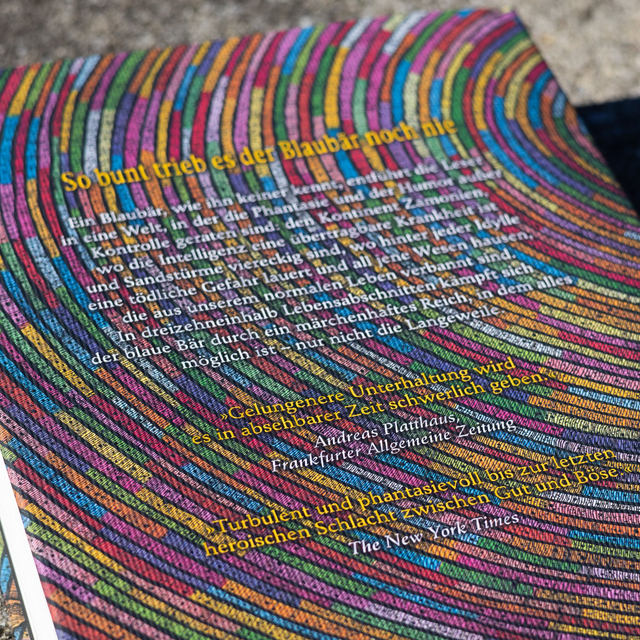 So bunt trieb es der Blaubär noch nie
Ein Blaubär, wie ihn keiner kennt, entführt die Leser
in eine Welt, in der die Phantasie und der Humor außer
Kontrolle geraten sind: den Kontinent Zamonien,
wo die Intelligenz eine übertragbare Krankheit ist
und Sandstürme viereckig sind, wo hinter jeder Idylle
eine tödliche Gefahr lauert und all jene Wesen hausen,
die aus unserem normalen Leben verbannt sind.
In dreizehneinhalb Lebensabschnitten kämpft sich
der blaue Bär durch ein märchenhaftes Reich, in dem alles
möglich ist – nur nicht die Langeweile.
»Gelungenere Unterhaltung wird
es in absehbarer Zeit schwerlich geben.«
Andreas Platthaus,
Frankfurter Allgemeine Zeitung
»Turbulent und phantasievoll bis zur letzten
heroischen Schlacht zwischen Gut und Böse.«
The New York Times